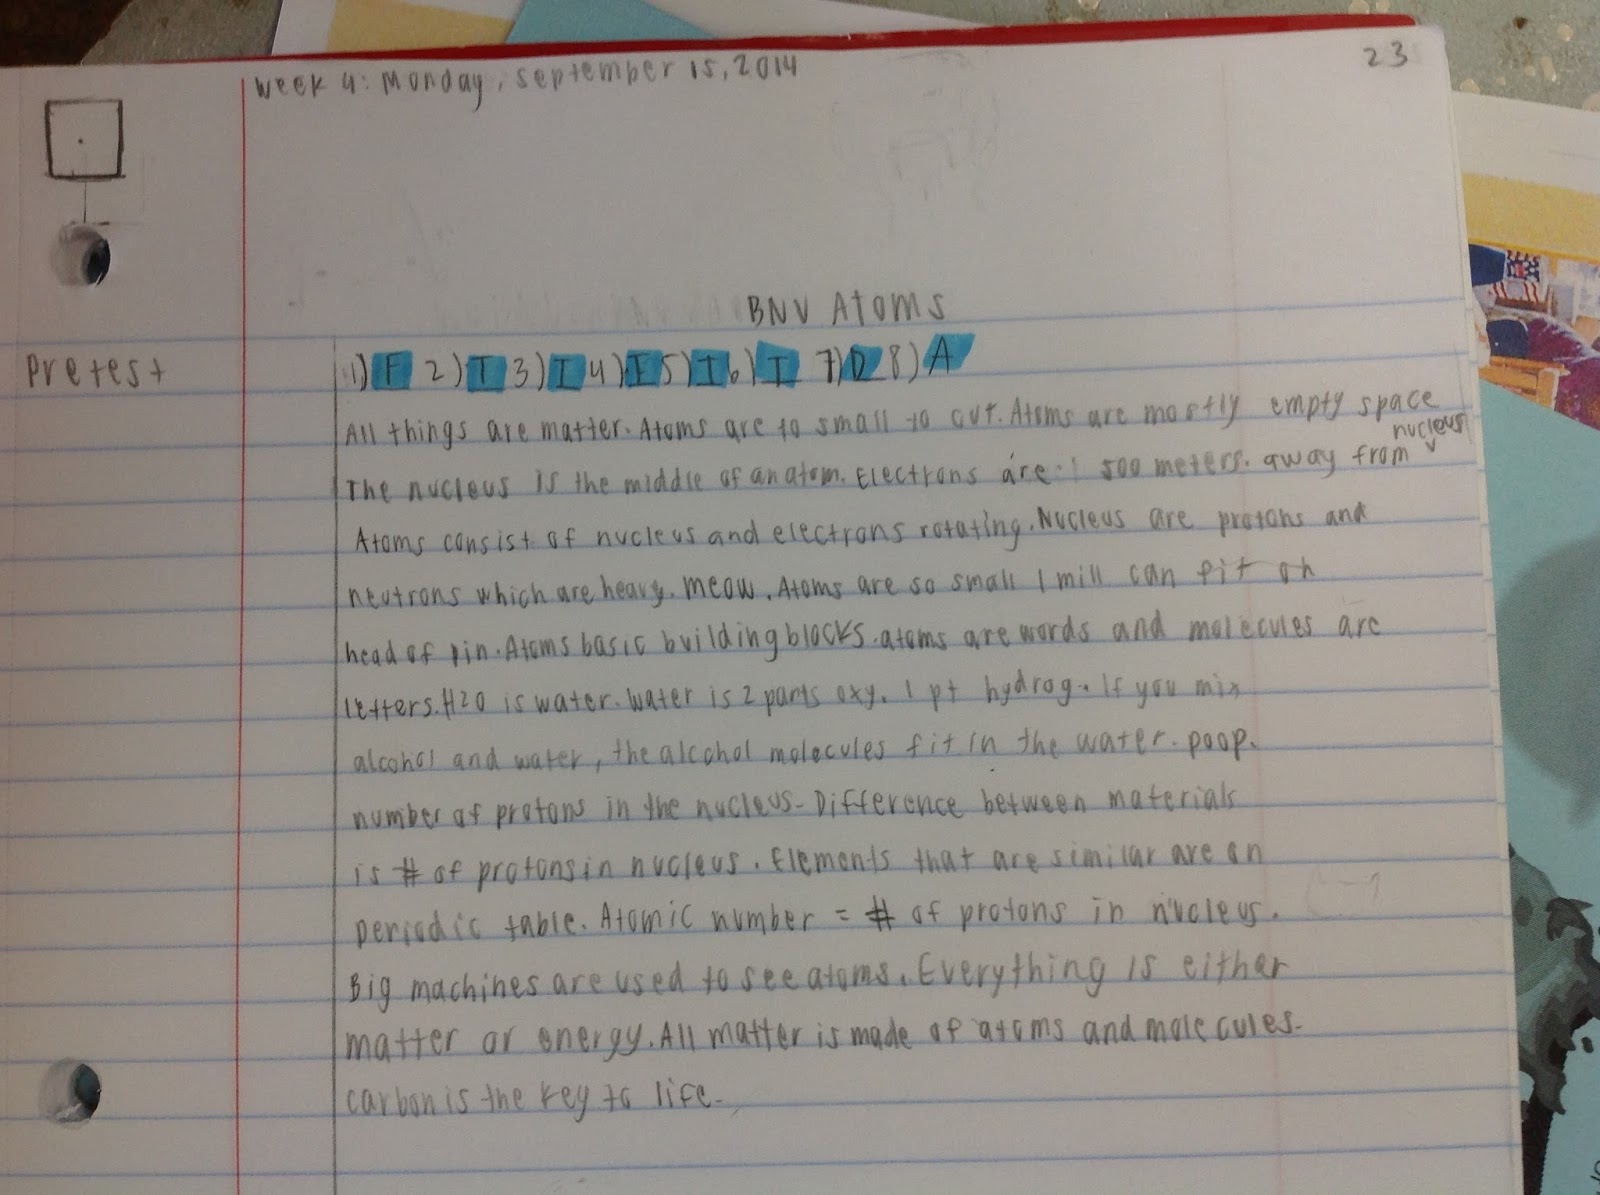 23
Week 4: Monday, september 15, 2014
BNV Atoms
Pretest
1) F 2) T 3) I 4) F 5) I 6) I 7) D 8) A
All things are matter. Atoms are to small to cut. Atoms are mostly empty space
nucleus
The nucleus is the middle of an atom. Electrons are 500 meters. away from
Atoms consist of nucleus and electrons rotating. Nucleus are protons and
neutrons which are heavy. meow. Atoms are so small 1 mill can fit on
head of pin. Atoms basic building blocks. atoms are words and molecules are
letters. H2O is water. Water is 2 parts oxy. 1 pt hydrog. If you mix
alcohol and water, the alcohol molecules fit in the water. poop.
number of protons in the nucleus- Difference between materials
is # of protons in nucleus. Elements that are similar are on
periodic table. Atomic number = # of protons in nucleus.
Big machines are used to see atoms. Everything is either
matter or energy. All matter is made of atoms and molecules.
carbon is the key to life.